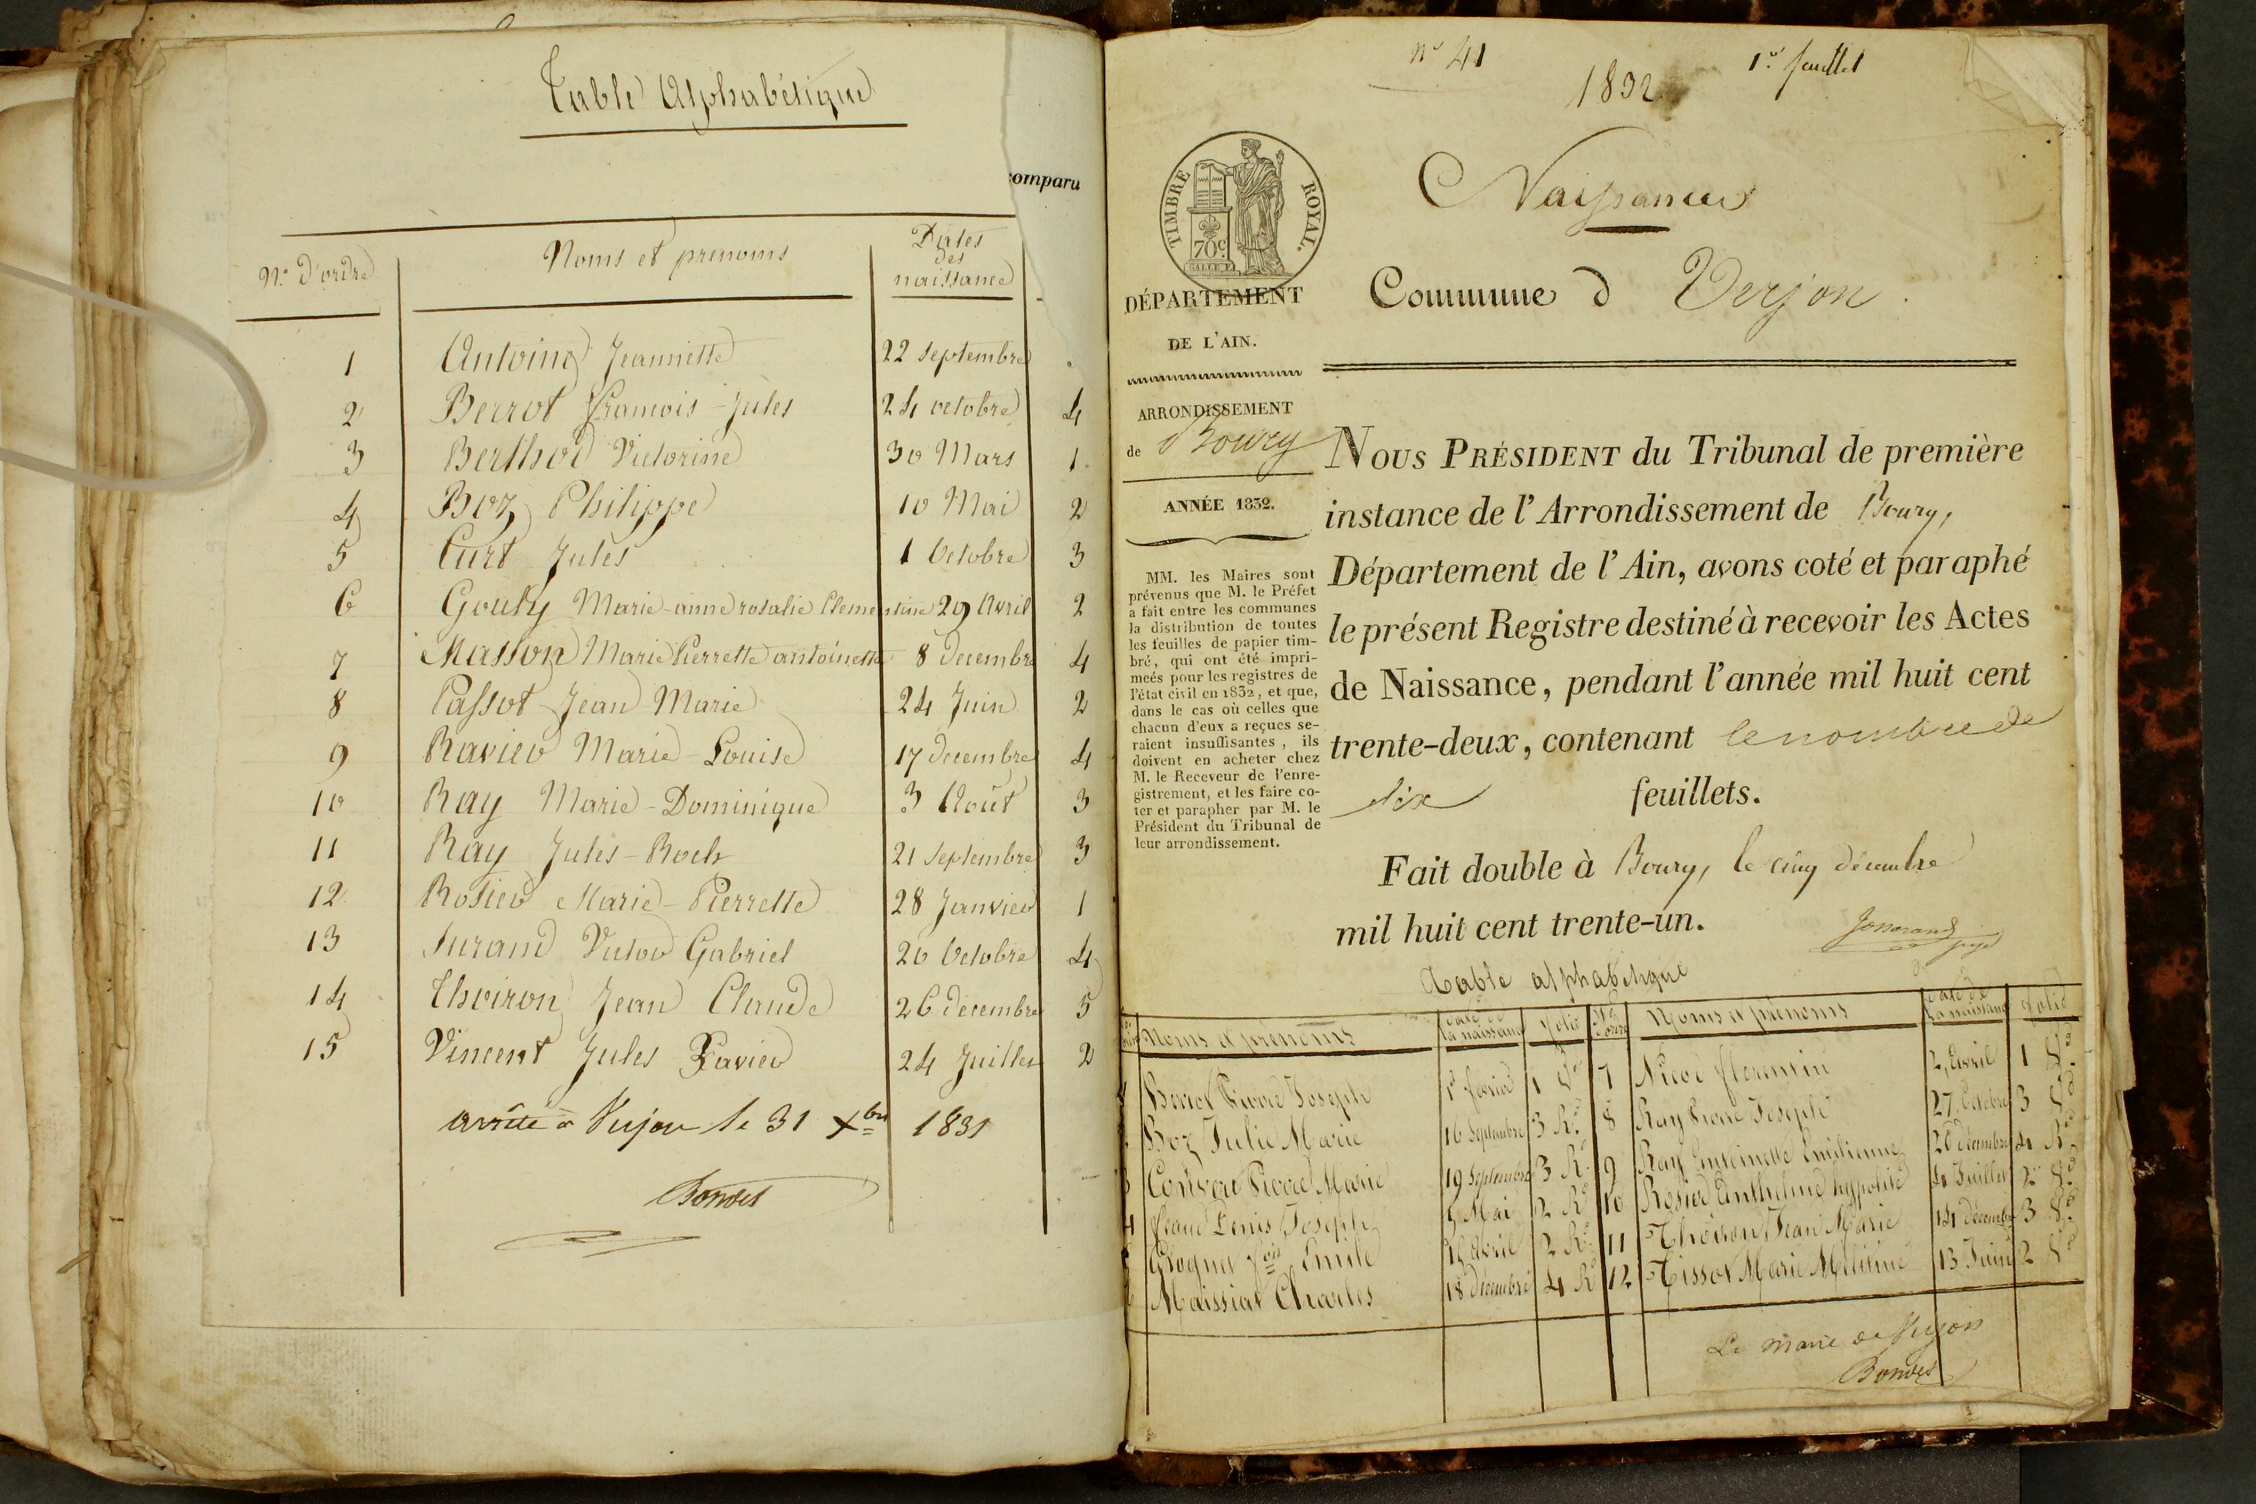 Table Alphabétique
comparu
N.o d'ordre
Noms et prenoms
Dates
des
naissance
1 Antoine Jeannette 22 septembre
2 Berrot francois-Jules 24 octobre 4
3 Berthod Victorine 30 Mars 1
4 Boz Philippe 10 Mai 2
5 Curt Jules 1 Octobre 3
6 Gouly Marie-anne rosalie Clementine 29 Avril 2
7 Masson Marie Pierrette antoinette 8 decembre 4
8 Passot Jean Marie 24 Juin 2
9 Ravier Marie-Louise 17 decembre 4
10 Ray Marie-Dominique 3 Août 3
11 Ray Jules-Roch 21 septembre 3
12 Rosier Marie-Pierrette 28 Janvier 1
13 Surand Victor Gabriel 20 Octobre 4
14 Thoiron Jean Claude 26 decembre 5
15 Vincent Jules Xavier 24 Juillet 2
arrêté à Verjon le 31 Xbre 1831
N.o 41
1832
1.er feuillet
TIMBRE ROYAL.
70c
Naissances
Commune d Verjon.
DÉPARTEMENT
DE L'AIN.
ARRONDISSEMENT
de Bourg
ANNÉE 1832.
MM. les Maires sont
prévenus que M. le Préfet
a fait entre les communes
la distribution de toutes
les feuilles de papier tim-
bré, qui ont été impri-
meés pour les registres de
l'état civil en 1832, et que,
dans le cas où celles que
chacun d'eux a reçues se-
raient insuffisantes, ils
doivent en acheter chez
M. le Receveur de l'enre-
gistrement, et les faire co-
ter et parapher par M. le
Président du Tribunal de
leur arrondissement.
NOUS PRÉSIDENT du Tribunal de première
instance de l'Arrondissement de Bourg,
Département de l'Ain, avons coté et paraphé
le présent Registre destiné à recevoir les Actes
de Naissance, pendant l'année mil huit cent
trente-deux, contenant le nombre de
six feuillets.
Fait double à Bourg, le cinq décembre
mil huit cent trente-un.
Table alphabétique
Noms et prénoms date de la naissance folio Noms et prénoms date de la naissance folio
Berrot Pierre Joseph 1er fevrier 1 Vo 7 Nicod florentin 2 Avril 1 Vo
Boz Julie Marie 16 Septembre 3 Ro 8 Ray Pierre Joseph 27 Octobre 3 Vo
Pierre Marie 19 Septembre 3 Ro 9 Ray Antoinette Emilienne 28 décembre 4 Ro
4 Denis Joseph 9 Mai 2 Ro 10 Rosier Anthelme hypolite 4 Juillet 2 Vo
Emile Avril 2 Ro 11 Thoiron Jean Marie 14 décembre 3 Vo
Maissiat Charles 18 décembre 4 Ro 12 Tissot Marie Melitine 13 Juin 2 Vo
Le maire de Verjon